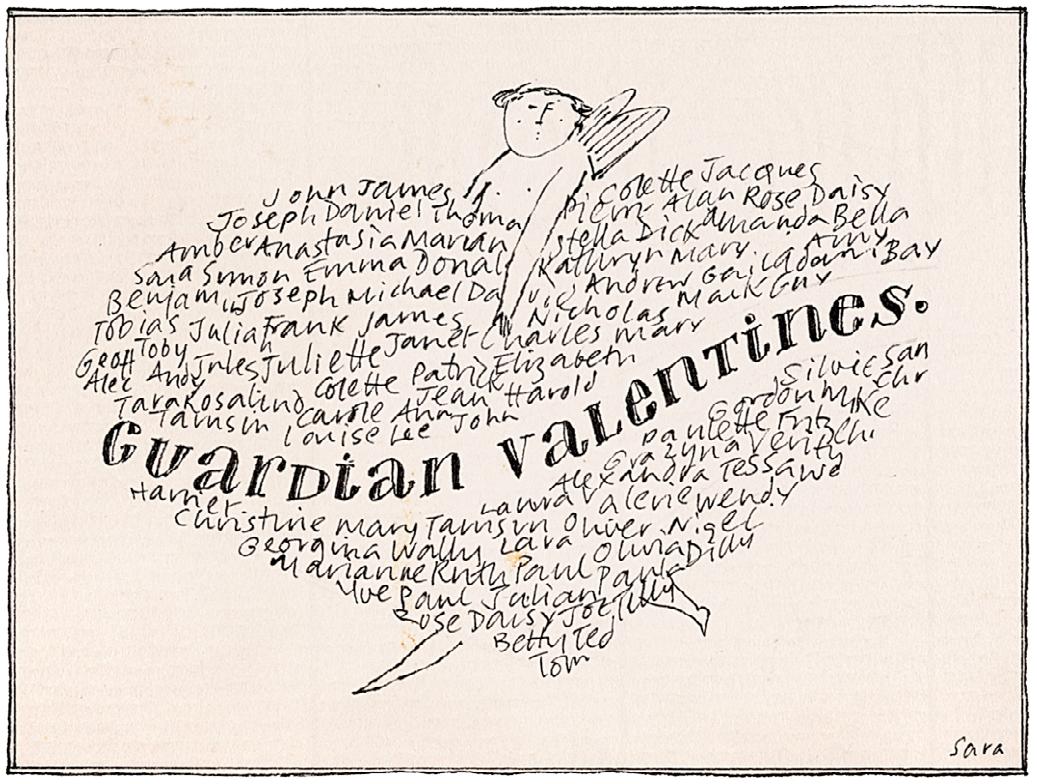 John James
Joseph Daniel Thoma
Amber Anastasia Marian
Sara Simon Emma Donal
Benjam Joseph Michael Da
Tobias Julia Frank James
Geoff Toby Jules Juliette Janet Charles mary
Alec Andy Colette Patrick Elizabeth
Tara Rosalind Jean Harold
Tamsin Carole Ann John
Louise Lee
Colette Jacques
Pierre Alan Rose Daisy
Stella Dick Amanda Bella
Kathryn Mary Amy
Andrew Gail dani Bay
Nicholas Mark Guy
Guardian Valentines.
Silvie San
Gordon Mike Chr
Paulette Fritz
Grazyna Verity
Alexandra Tessa
Harriet Laura Valerie Wendy
Christine Mary Tamsin Oliver Nigel
Georgina Wally Lara Olivia Dilly
Marianne Ruth Paul Paula
Paul Julian
Rose Daisy Joe Tilly
Betty Ted
Tom
Sara